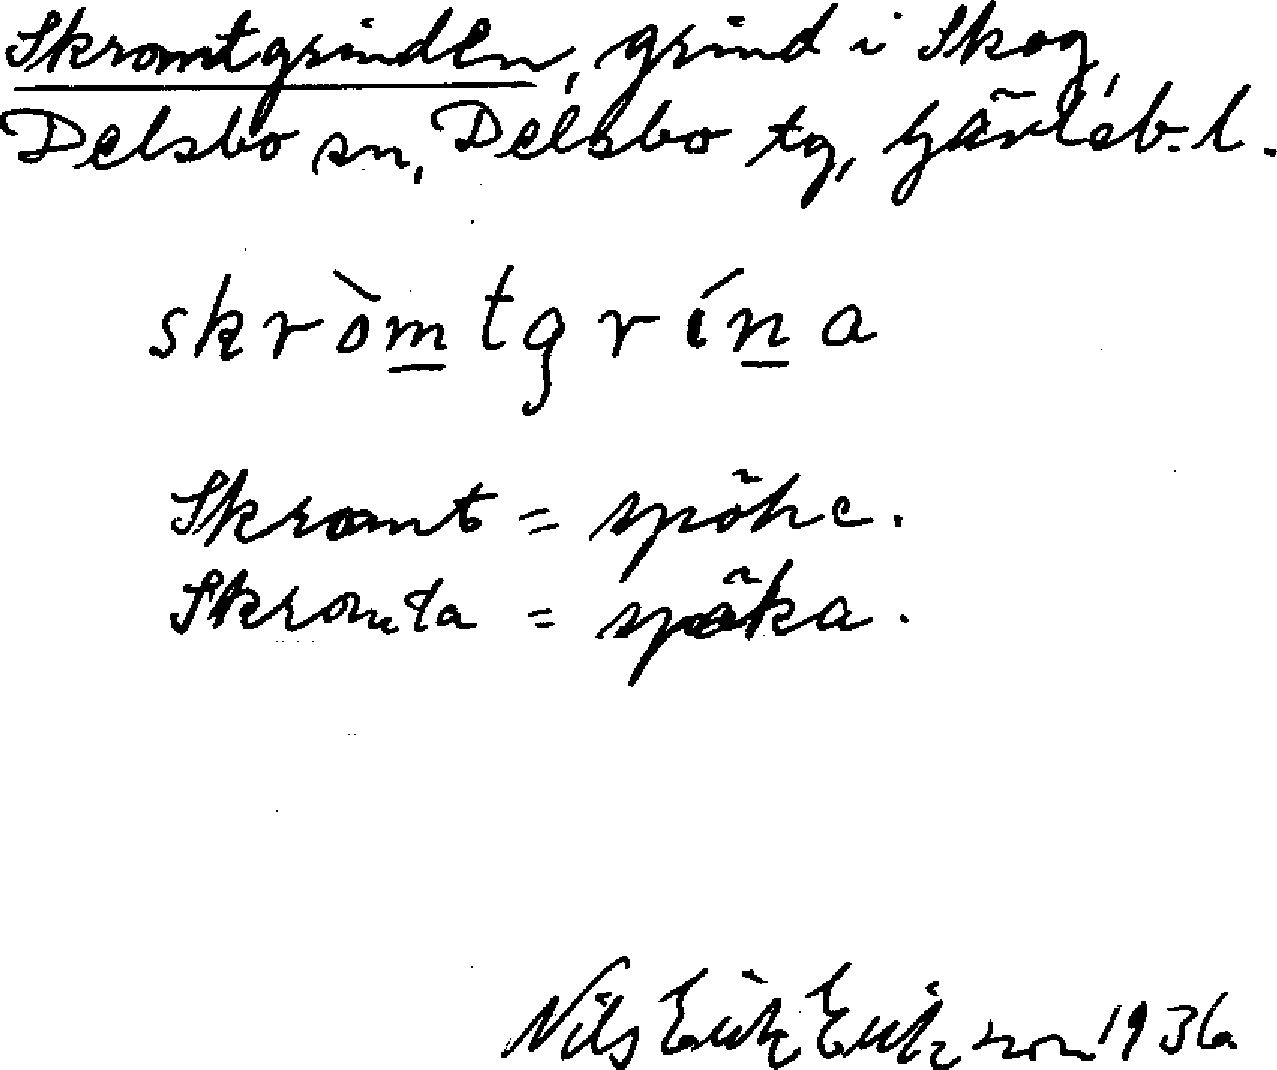 Skromtgrinden, grind i Skog,
Delsbo sn, Delsbo tg, Gävleb. l.
skròmtgrína
Skromt = spöke.
Skromta = spöka.
Nils Erik Eriksson 1936